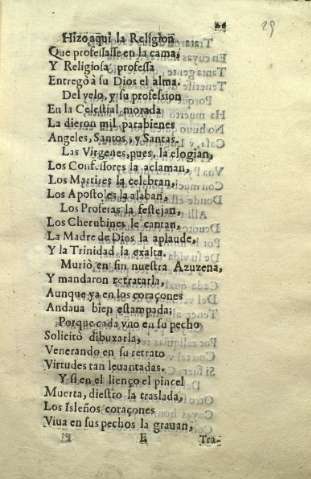 29
Hizo aqui la Religion
Que professasse en la cama,
Y Religiosa professa
Entregò à su Dios el alma.
Del velo, y su profession
En la Celestial morada
La dieron mil parabienes
Angeles, Santos, y Santas.
Las Virgenes, pues, la elogian,
Los Confessores la aclaman,
Los Martires la celebran,
Los Apostoles la alaban,
Los Profetas la festejan,
Los Cherubines le cantan,
La Madre de Dios la aplaude,
Y la Trinidad la exalta.
Muriò en fin nuestra Azuzena,
Y mandaron retratarla,
Aunque ya en los coraçones
Andaua bien estampada;
Porque cada vno en su pecho
Solicitò dibuxarla,
Venerando en su retrato
Virtudes tan leuantadas.
Y si en el lienço el pincel
Muerta, diestro la traslada,
Los Isleños coraçones
Viua en sus pechos la grauan,
Tra-